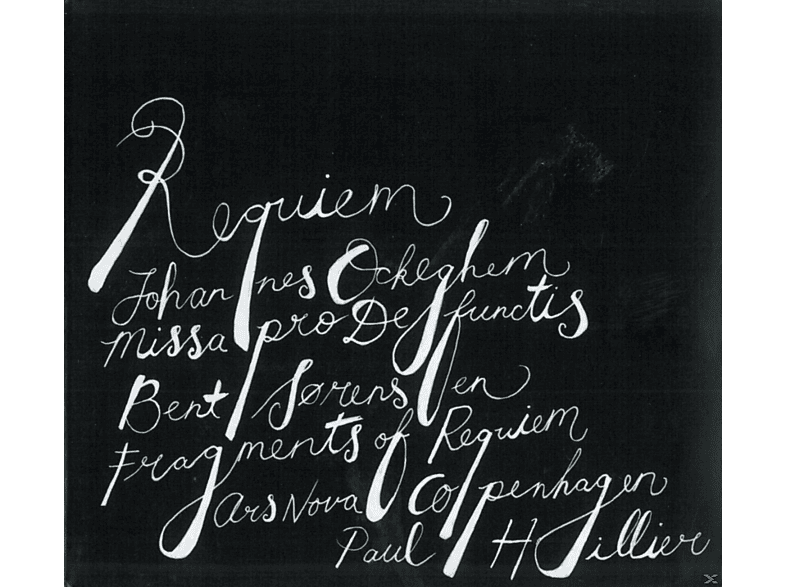 Requiem
Johannes Ockeghem
Missa pro Defunctis
Bent Sørensen
Fragments of Requiem
Ars Nova Copenhagen
Paul Hillier